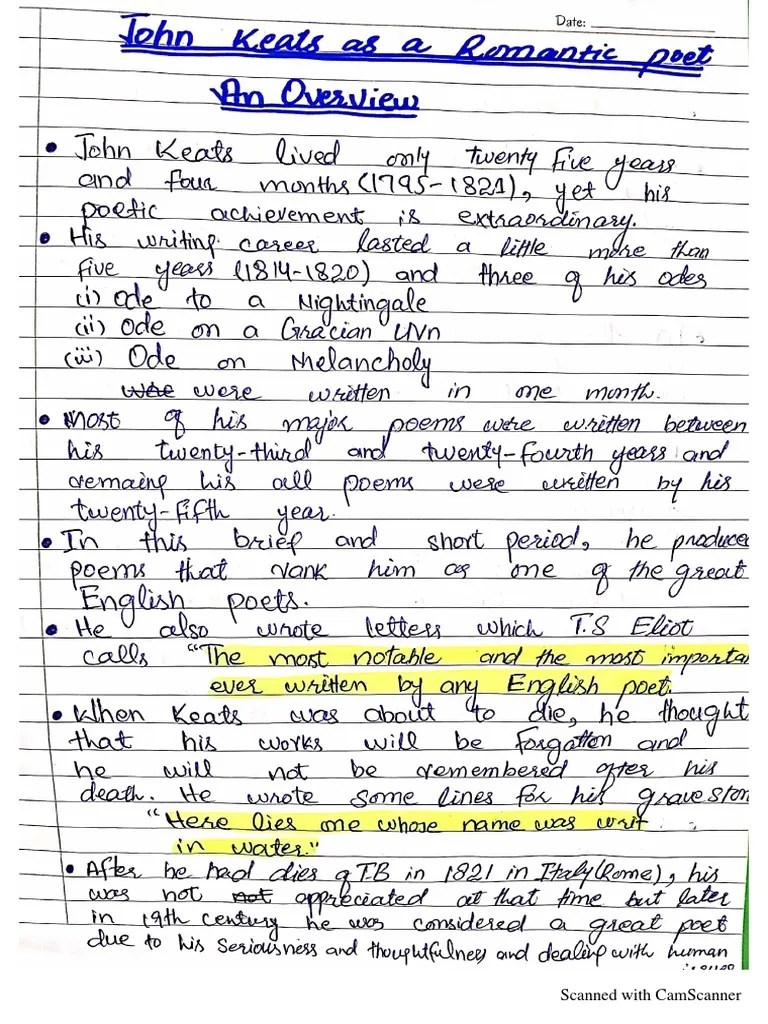 Date:
John Keats as a Romantic poet
An Overview
• John Keats lived only twenty five years
and four months (1795-1821), yet his
poetic achievement is extraordinary.
• His writing career lasted a little more than
five years (1814-1820) and three of his odes
(i) Ode to a Nightingale
(ii) Ode on a Gracian Urn
(iii) Ode on Melancholy
were were written in one month.
• Most of his major poems were written between
his twenty-third and twenty-fourth years and
remaing his all poems were written by his
twenty-fifth year.
• In this brief and short period, he produce
poems that rank him as one of the great
English poets.
• He also wrote letters which T.S Eliot
calls "The most notable and the most importa
ever written by any English poet.
• When Keats was about to die, he thought
that his works will be forgatten and
he will not be remembered after his
death. He wrote some lines for his graveston
"Here lies one whose name was writ
in water."
• After he had dies of TB in 1821 in Italy (Rome), his
was not not appreciated at that time but later
in 19th century he was considered a great poet
due to his seriousness and thoughtfulness and dealing with human
Scanned with CamScanner